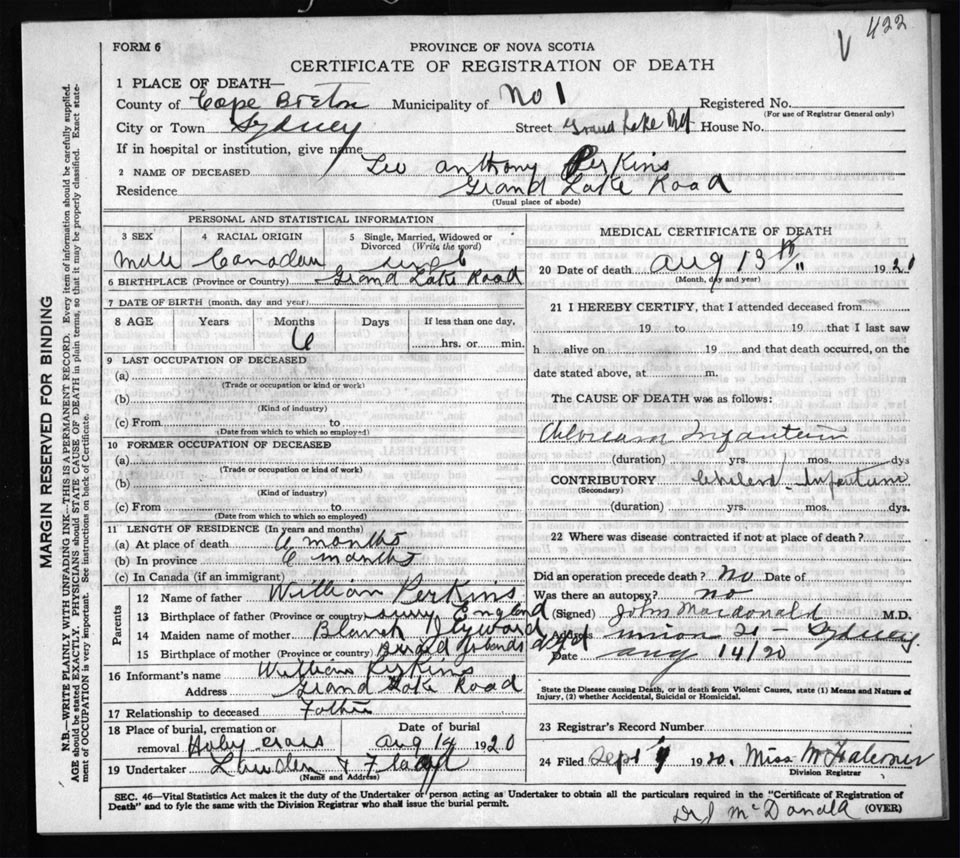 422
FORM 6
PROVINCE OF NOVA SCOTIA
CERTIFICATE OF REGISTRATION OF DEATH
1 PLACE OF DEATH—
County of Cape Breton Municipality of No 1 Registered No.
(For use of Registrar General only)
City or Town Sydney Street Grand Lake Rd House No.
If in hospital or institution, give name
2 NAME OF DECEASED Leo Anthony Perkins
Residence Grand Lake Road
(Usual place of abode)
PERSONAL AND STATISTICAL INFORMATION
3 SEX 4 RACIAL ORIGIN 5 Single, Married, Widowed or Divorced (Write the word)
Male Canadian
6 BIRTHPLACE (Province or Country) Grand Lake Road
7 DATE OF BIRTH (month, day and year)
8 AGE Years Months Days If less than one day,
6 hrs. or min.
9 LAST OCCUPATION OF DECEASED
(a)
(Trade or occupation or kind or work)
(b)
(Kind of industry)
(c) From to
(Date from which to which so employed)
10 FORMER OCCUPATION OF DECEASED
(a)
(Trade or occupation or kind of work)
(b)
(Kind of industry)
(c) From to
(Date from which to which so employed)
11 LENGTH OF RESIDENCE (In years and months)
(a) At place of death 6 months
(b) In province 6 months
(c) In Canada (if an immigrant)
Parents
12 Name of father William Perkins
13 Birthplace of father (Province or country) England
14 Maiden name of mother Blanch
15 Birthplace of mother (Province or country)
16 Informant's name William Perkins
Address Grand Lake Road
17 Relationship to deceased Father
18 Place of burial, cremation or removal Holy Cross Date of burial Aug 14 1920
19 Undertaker
(Name and Address)
MEDICAL CERTIFICATE OF DEATH
20 Date of death Aug 13th 192
(Month, day and year)
21 I HEREBY CERTIFY, that I attended deceased from
19 to 19 that I last saw
h alive on 19 and that death occurred, on the
date stated above, at m.
The CAUSE OF DEATH was as follows:
Infantum
(duration) yrs. mos. dys
CONTRIBUTORY Infantum
(Secondary)
(duration) yrs. mos. dys.
22 Where was disease contracted if not at place of death?
Did an operation precede death? No Date of
Was there an autopsy? no
(Signed) John Macdonald M.D.
Address Union St – Sydney
Date Aug 14/20
State the Disease causing Death, or in death from Violent Causes, state (1) Means and Nature of
Injury, (2) whether Accidental, Suicidal or Homicidal.
23 Registrar's Record Number
24 Filed Sept 1920. Miss
Division Registrar
SEC. 46—Vital Statistics Act makes it the duty of the Undertaker or person acting as Undertaker to obtain all the particulars required in the "Certificate of Registration of
Death" and to fyle the same with the Division Registrar who shall issue the burial permit. (OVER)
Dr J McDonald
MARGIN RESERVED FOR BINDING
N.B.—WRITE PLAINLY WITH UNFADING INK—THIS IS A PERMANENT RECORD. Every item of information should be carefully supplied.
AGE should be stated EXACTLY. PHYSICIANS should STATE CAUSE OF DEATH in plain terms, so that it may be properly classified. Exact statement
of OCCUPATION is very important. See instructions on back of Certificate.